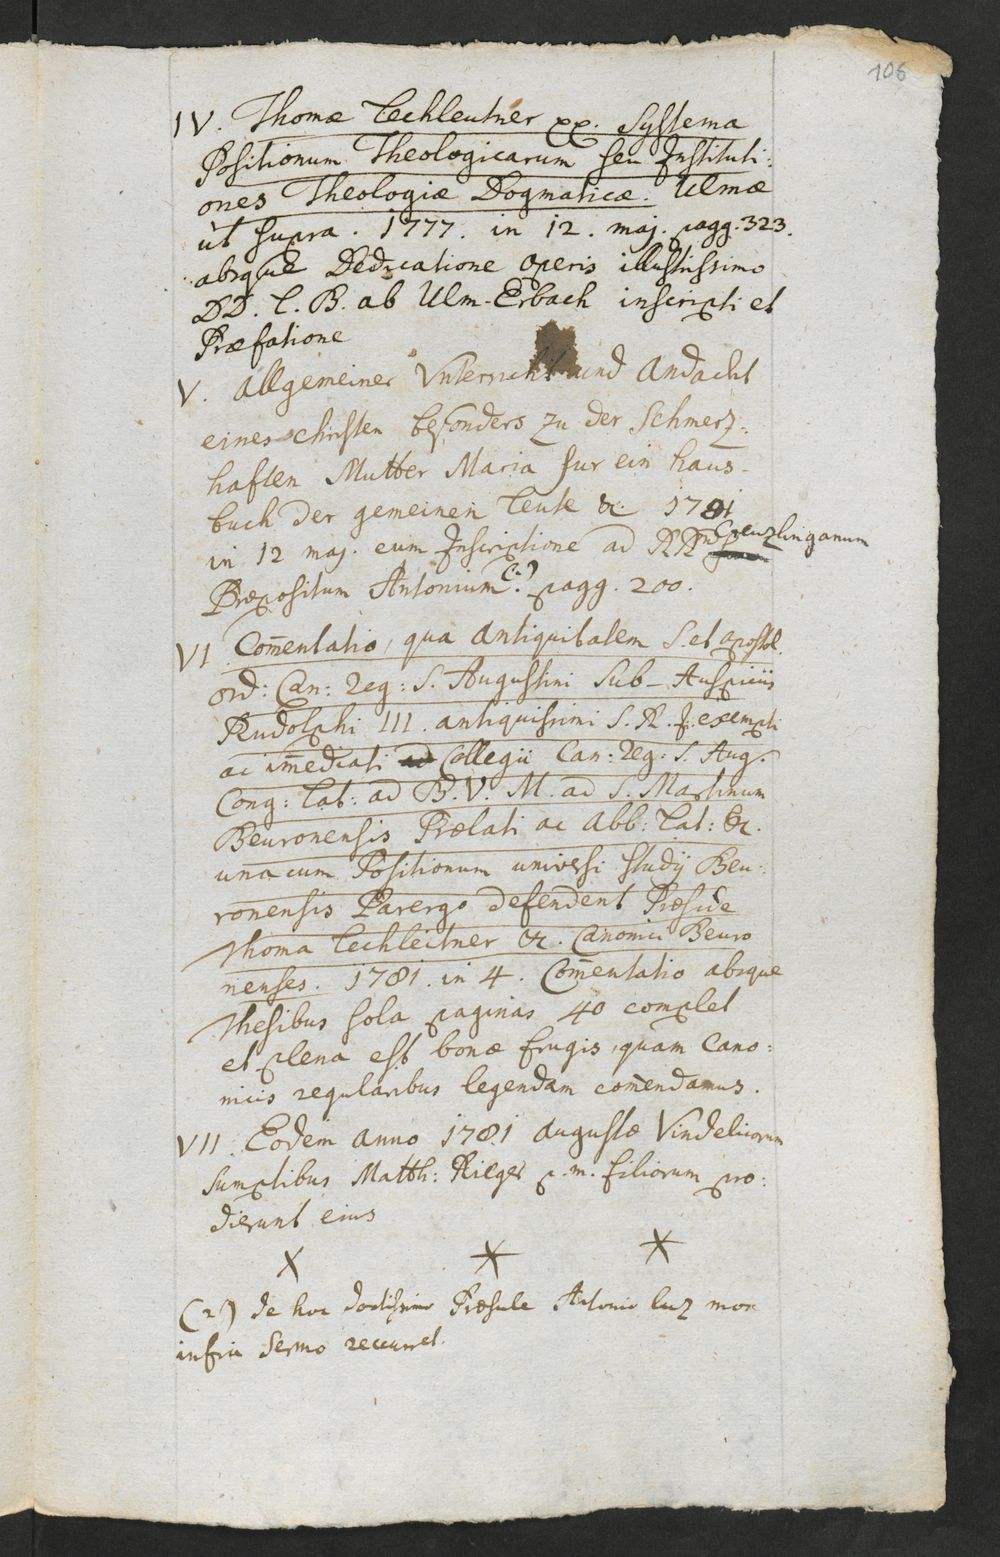 106
IV. Thomæ Lechleutner pp. Systema
Positionum Theologicarum seu Instituti:
ones Theologiæ Dogmaticæ. Ulmæ
ut supra. 1777. in 12. maj. pagg. 323.
absque Dedicatione operis illustrissimo
DD. L. B. ab Ulm-Erbach inscripti et
Præfatione
V. allgemeiner Unterricht und Andacht
eines christen besonders zu der Schmerz-
haften Mutter Maria fur ein haus-
buch der gemeinen Leute &c. 1781
in 12 maj. cum Inscriptione ad RR Creuzlinganum
Præpositum Antonium (2) pagg. 200.
VI Com̄entatio, qua antiquitatem S. et apostol.
ord: Can: Reg: S. Augustini sub Auspiciis
Rudolphi III. antiquissimi S. R. J. exempti
ac im̄ediati Collegii Can: Reg: S. Aug.
Cong: Lat: ad B. V. M. ad S. Martinum
Beuronensis Prælati ac Abb: Lat: &c.
una cum Positionum universi studij Beu:
ronensis Parergo defendent Præside
Thoma Lechleitner &c. Canonici Beuro
nenses. 1781. in 4. Com̄entatio absque
Thesibus sola paginas 40 complet
et plena est bonæ frugis, quam Cano:
nicis regularibus legendam com̄endamus.
VII. Eodem anno 1781 Augustæ Vindelicorum
sumptibus Matth: Rieger p. m. filiorum pro:
dierunt eius
x x x
(2) de hoc doctissimo Præsule Antonio Luz mox
infra sermo recurret.